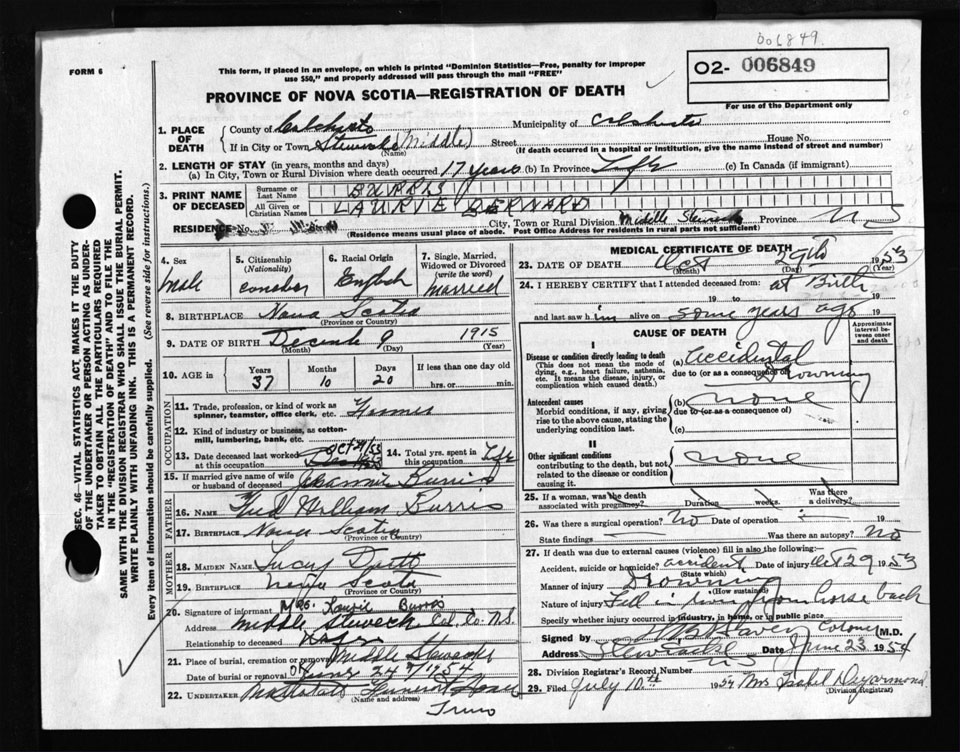 006849
FORM 6
This form, if placed in an envelope, on which is printed "Dominion Statistics—Free, penalty for improper
use $50," and properly addressed will pass through the mail "FREE"
O2- 006849
For use of the Department only
PROVINCE OF NOVA SCOTIA—REGISTRATION OF DEATH
1. PLACE OF DEATH
County of Colchester Municipality of Colchester
If in City or Town Stewiacke (Middle) Street House No.
(Name) (If death occurred in a hospital or institution, give the name instead of street and number)
2. LENGTH OF STAY (in years, months and days)
(a) In City, Town or Rural Division where death occurred 17 years (b) In Province Life (c) In Canada (if immigrant)
3. PRINT NAME OF DECEASED
Surname or Last Name BURRIS
All Given or Christian Names LAURIE BERNARD
RESIDENCE No. City, Town or Rural Division Middle Stewiacke Province N S
(Residence means usual place of abode. Post Office Address for residents in rural parts not sufficient)
4. Sex
male
5. Citizenship
(Nationality)
6. Racial Origin
English
7. Single, Married, Widowed or Divorced
(write the word)
married
8. BIRTHPLACE Nova Scotia
(Province or Country)
9. DATE OF BIRTH December 9 1915
(Month) (Day) (Year)
10. AGE in
Years Months Days If less than one day
37 10 20 hrs. or min.
OCCUPATION
11. Trade, profession, or kind of work as spinner, teamster, office clerk, etc. Farmer
12. Kind of industry or business, as cotton-mill, lumbering, bank, etc.
13. Date deceased last worked at this occupation
14. Total yrs. spent in this occupation Life
15. If married give name of wife or husband of deceased Burris
FATHER
16. NAME Fred William Burris
17. BIRTHPLACE Nova Scotia
(Province or Country)
MOTHER
18. MAIDEN NAME Lucy
19. BIRTHPLACE Nova Scotia
(Province or Country)
20. Signature of informant Mrs. Laurie Burris
Address Middle Stewiacke Col. Co. N.S.
Relationship to deceased
21. Place of burial, cremation or removal Middle Stewiacke
Date of burial or removal
22. UNDERTAKER Funeral Home
(Name and address)
Truro
MEDICAL CERTIFICATE OF DEATH
23. DATE OF DEATH Oct 29th 1953
(Month) (Day) (Year)
24. I HEREBY CERTIFY that I attended deceased from: at Birth
19 to 19
and last saw him alive on some years ago 19
CAUSE OF DEATH
Approximate interval between onset and death
I
Disease or condition directly leading to death
(This does not mean the mode of dying, e.g., heart failure, asthenia, etc. It means the disease, injury, or complication which caused death.)
(a) Accidental
due to (or as a consequence of)
Drowning
Antecedent causes
Morbid conditions, if any, giving rise to the above cause, stating the underlying condition last.
(b) none
due to (or as a consequence of)
(c)
II
Other significant conditions
contributing to the death, but not related to the disease or condition causing it.
none
25. If a woman, was the death associated with pregnancy? Duration weeks. Was there a delivery?
26. Was there a surgical operation? No Date of operation 19
State findings Was there an autopsy? No
27. If death was due to external causes (violence) fill in also the following:—
Accident, suicide or homicide? accident Date of injury Oct 29 1953
(State which)
Manner of injury Drowning
(How sustained)
Nature of injury Fell in river from horse back
Specify whether injury occurred in industry, in home, or in public place
Signed by Coroner M.D.
Address Stewiacke NS Date June 23 1954
28. Division Registrar's Record Number
29. Filed July 10th 1954 Mrs Isabel Dejarmond
(Division Registrar)
SEC. 46—VITAL STATISTICS ACT, MAKES IT THE DUTY
OF THE UNDERTAKER OR PERSON ACTING AS UNDER-
TAKER TO OBTAIN ALL THE PARTICULARS REQUIRED
IN THE "REGISTRATION OF DEATH" AND TO FILE THE
SAME WITH THE DIVISION REGISTRAR WHO SHALL ISSUE THE BURIAL PERMIT.
WRITE PLAINLY WITH UNFADING INK. THIS IS A PERMANENT RECORD.
Every item of information should be carefully supplied. (See reverse side for instructions.)